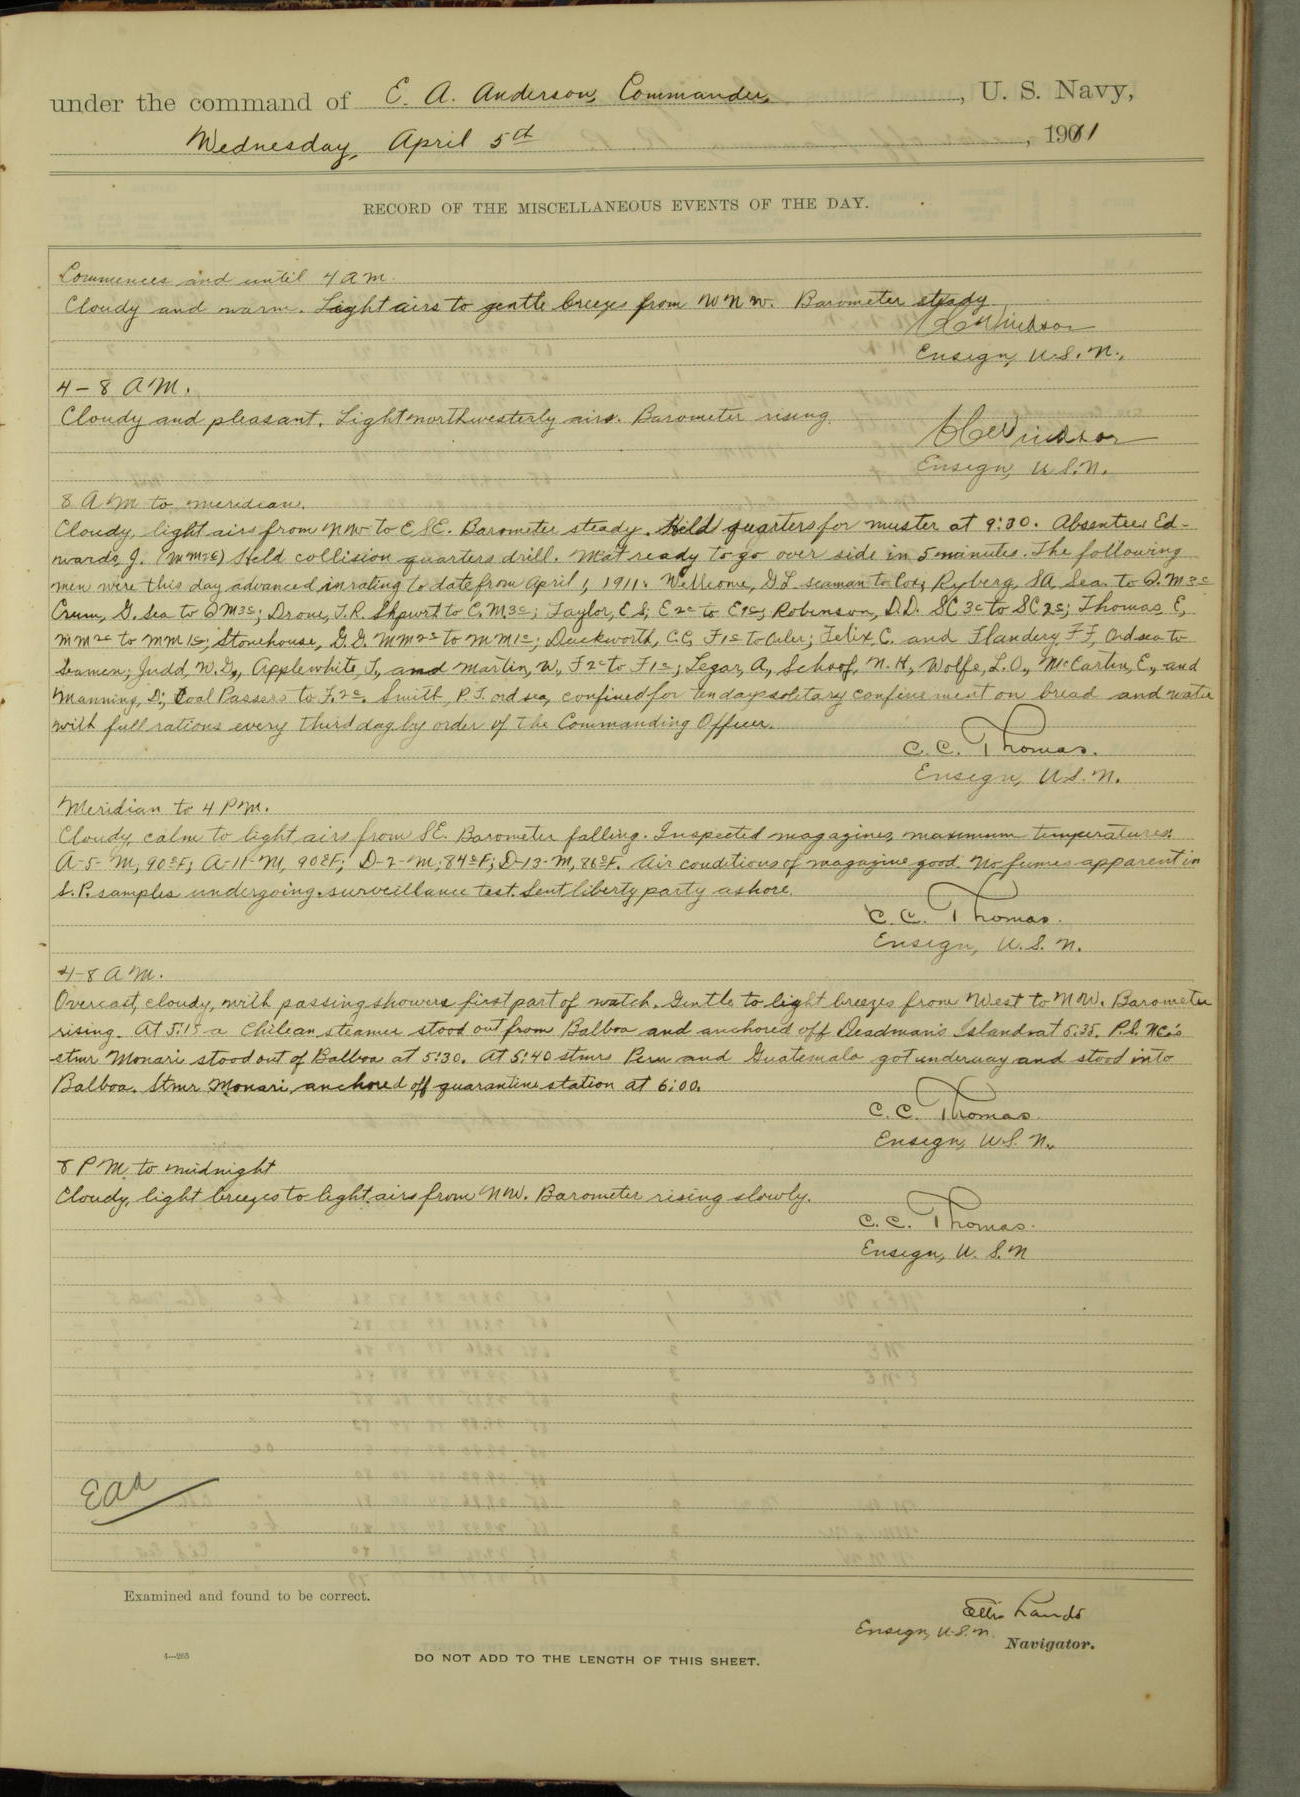 under the command of E. A. Anderson, Commander, , U. S. Navy,
Wednesday, April 5th , 1911
RECORD OF THE MISCELLANEOUS EVENTS OF THE DAY.
Commences and until 4 a m.
Cloudy and warm. Light airs to gentle breezes from WNW. Barometer steady.
Windsor
Ensign, U.S.N.,
4-8 AM.
Cloudy and pleasant. Light northwesterly airs. Barometer rising.
Windsor
Ensign, U.S.N.
8 AM to meridian.
Cloudy, light airs from NW to ESE. Barometer steady. Held quarters for muster at 9:30. Absentees Ed-
wards, J. (MM2c) Held collision quarters drill. Mat ready to go over side in 5 minutes. The following
men were this day advanced in rating to date from April 1, 1911: Wellcome, G.L. seaman to Cox; Ryberg, SA, Sea. to Q.M3c
Crum, G. Sea to QM3c; Drone, T.R. Shpwrt to C.M.3c; Taylor, E S, E2c to E1c; Robinson, D.D. SC3c to SC2c; Thomas E,
MM2c to MM1c; Stonehouse, G.G. MM2c to MM1c; Duckworth, C.C, F1c to Oiler; Felix, C. and Flandery, F F, Ord sea to
Seamen; Judd, W.G., Applewhite, J., and Martin, W., F2c to F1c; Legar, A., Schoof, N. H., Wolfe, L.O., McCartin, E., and
Manning, D; Coal Passers to F.2c. Smith, P.J. ord sea, confined for ten days solitary confinement on bread and water
with full rations every third day by order of the Commanding Officer.
C. C. Thomas.
Ensign, U.S.N.
Meridian to 4 PM.
Cloudy, calm to light airs from SE. Barometer falling. Inspected magazines, maximum temperatures:
A-5-M, 90°F; A-11-M, 90°F; D-2-M, 84°F; D-13-M, 86°F. Air conditions of magazine good. No fumes apparent in
S.P. samples undergoing surveillance test. Sent liberty party ashore.
C. C. Thomas.
Ensign, U.S.N.
4-8 AM.
Overcast, cloudy, with passing showers first part of watch. Gentle to light breezes from West to NW. Barometer
rising. At 5:15 a Chilean steamer stood out from Balboa and anchored off Deadman's Island at 5:35. P.S. NCo's
stmr Monari stood out of Balboa at 5:30. At 5:40 stmrs Peru and Guatemala got underway and stood into
Balboa. Stmr Monari, anchored off quarantine station at 6:00.
C. C. Thomas.
Ensign, U.S.N.,
8 PM to midnight
Cloudy, light breezes to light airs from NW. Barometer rising slowly.
C. C. Thomas.
Ensign, U.S.N
EAA
Examined and found to be correct.
Ellis Lando
Ensign, U.S.N. Navigator.
4—265
DO NOT ADD TO THE LENGTH OF THIS SHEET.